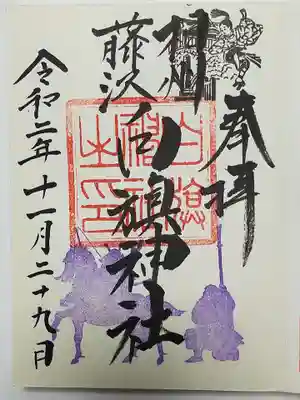 奉拝
相州
藤沢 白旗神社
令和二年十一月二十九日